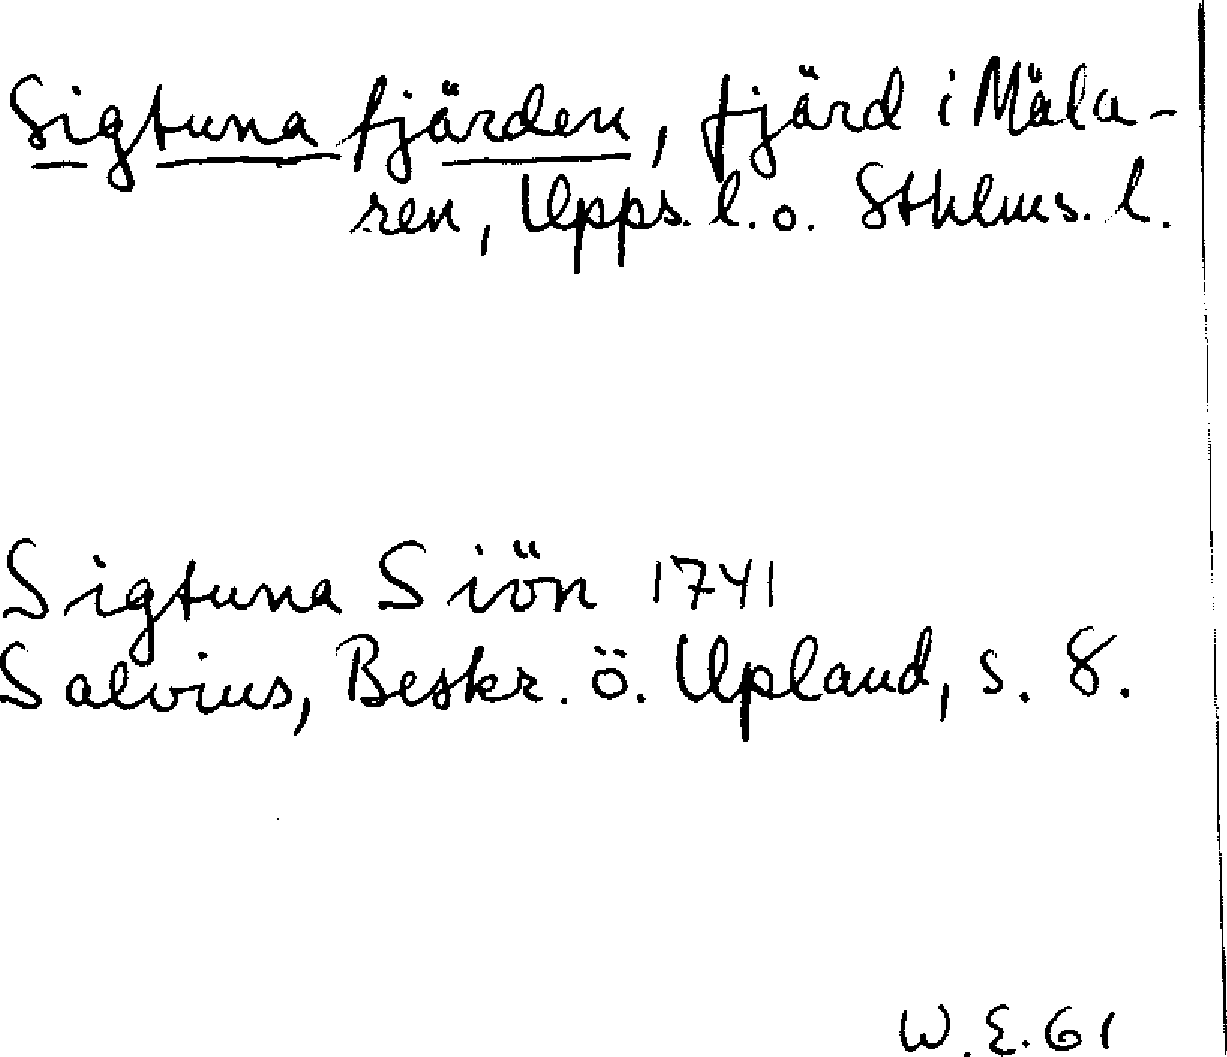 Sigtuna fjärden, fjärd i Mäla-
ren, Upps. l. o. Sthlms. l.
Sigtuna Siön 1741
Salvius, Beskr. ö. Upland, s. 8.
W. E. 61